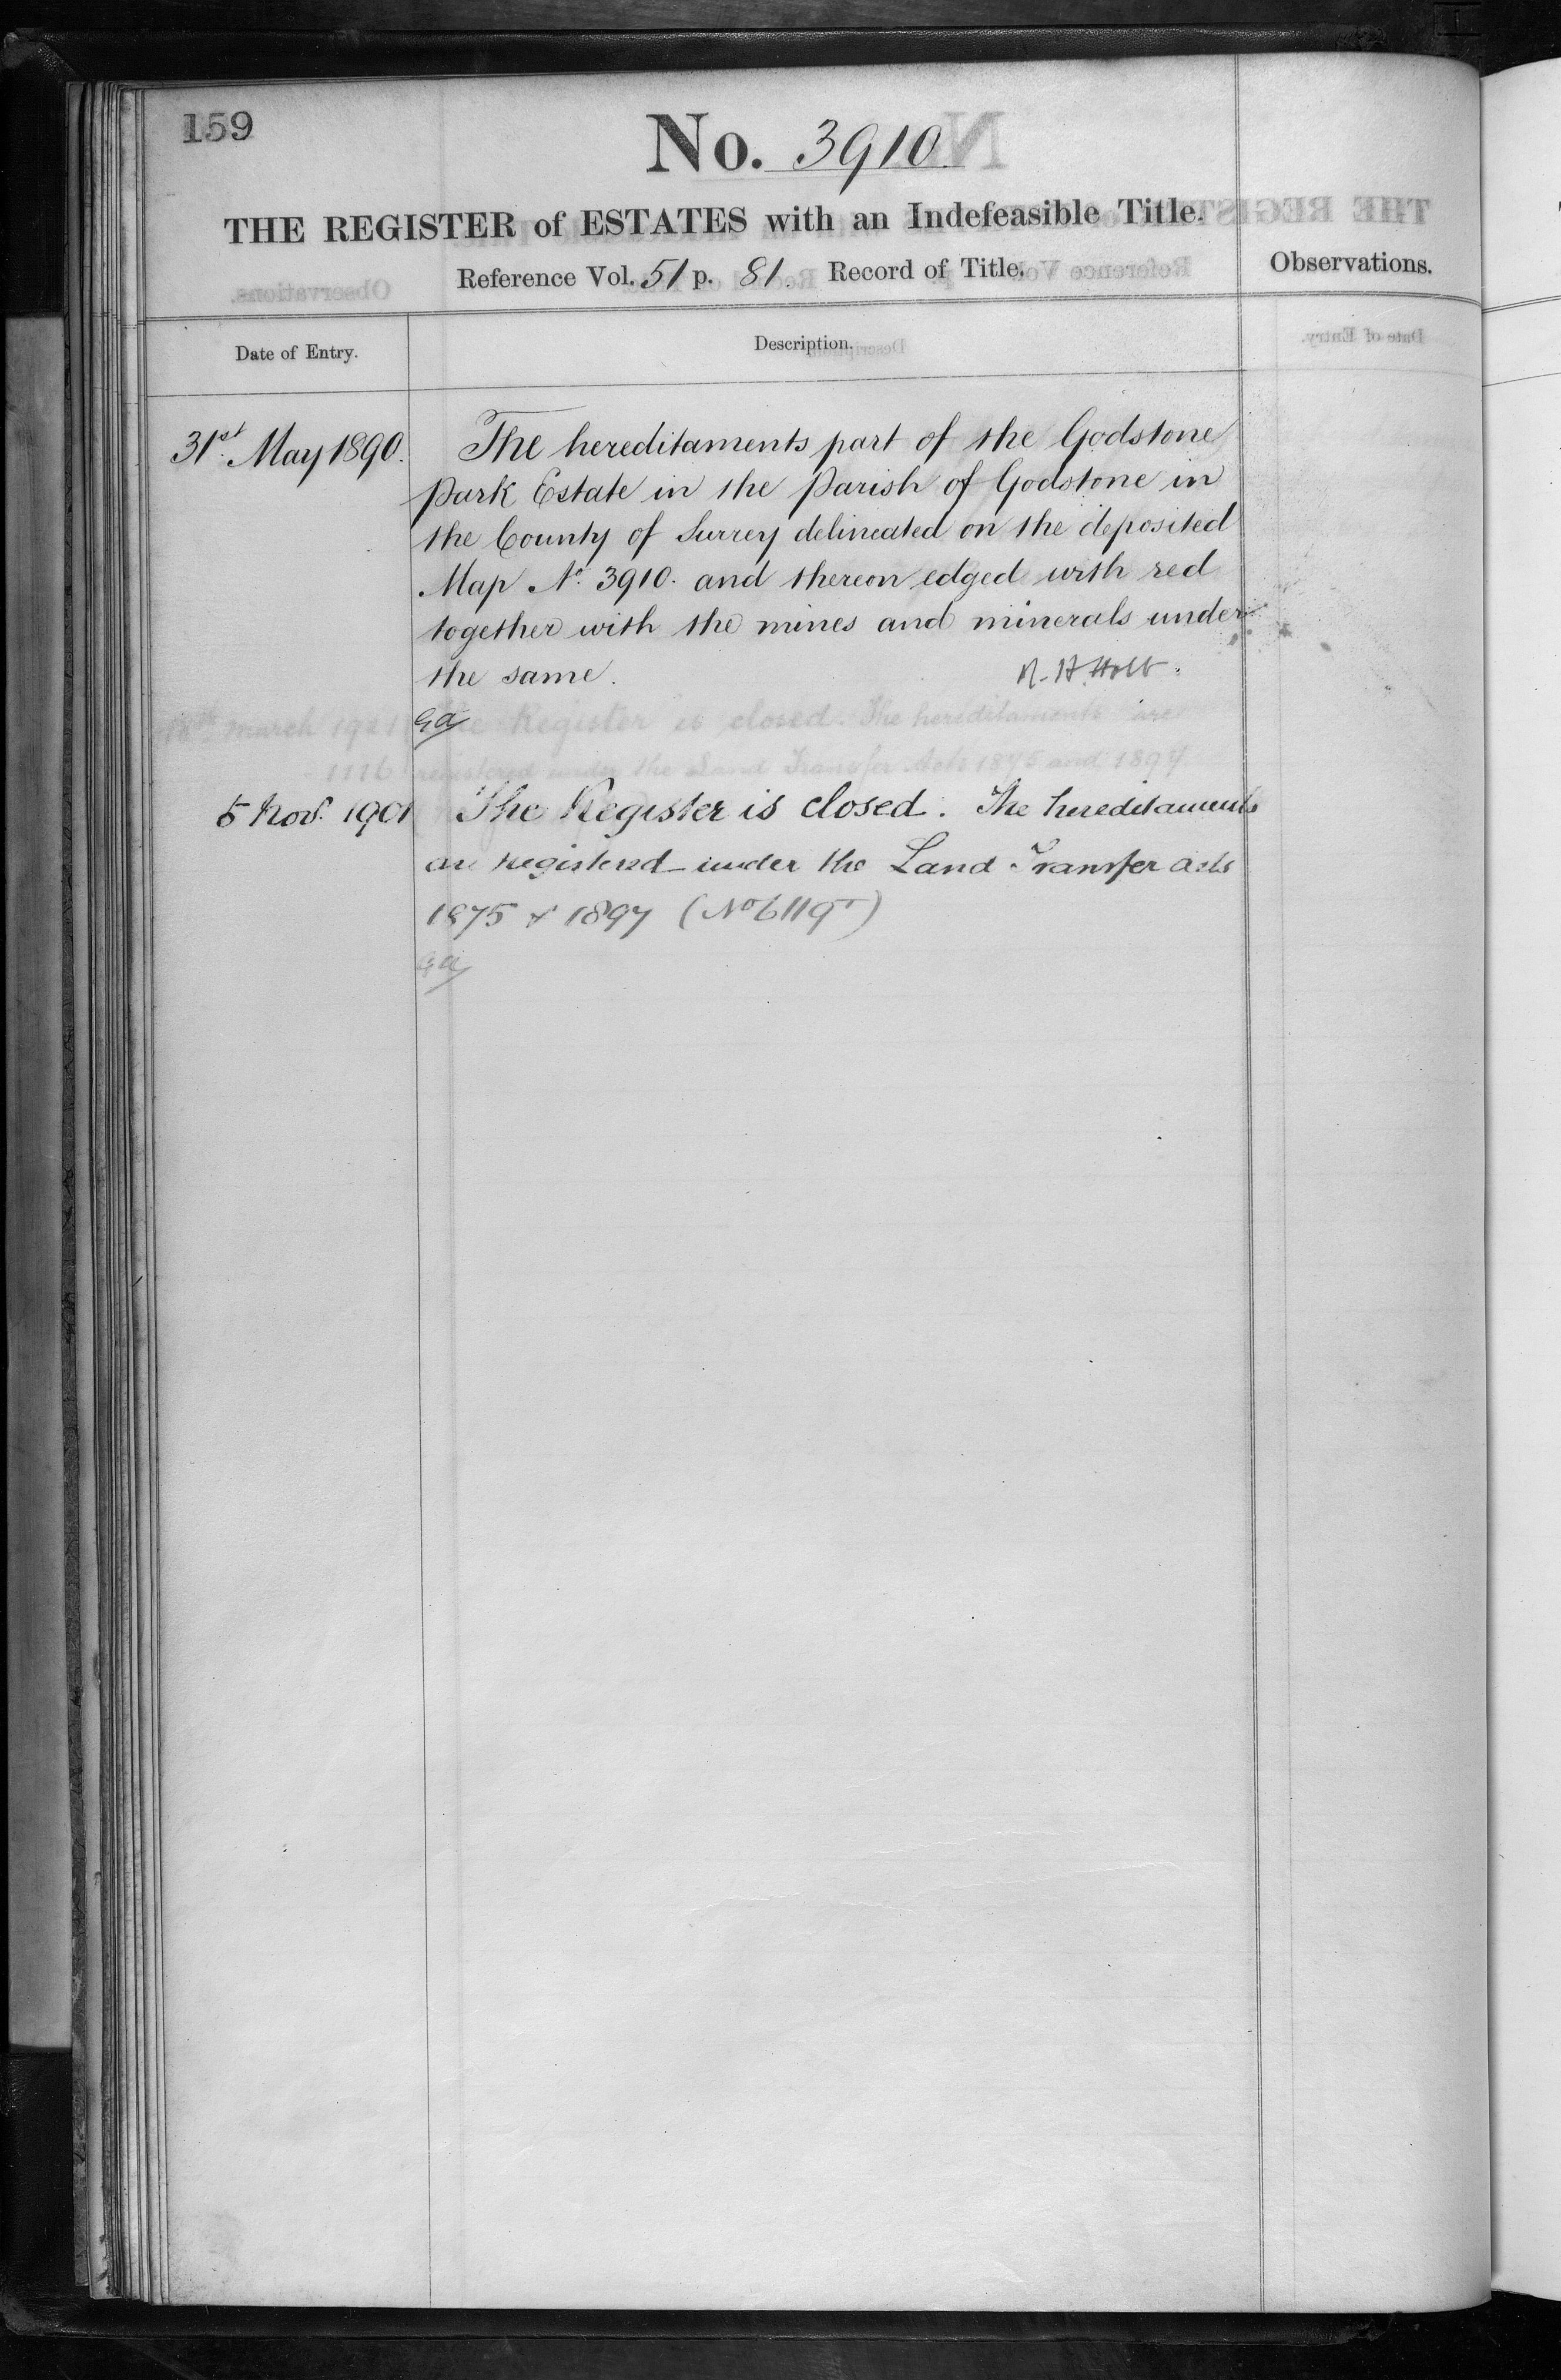 159
No. 3910
THE REGISTER of ESTATES with an Indefeasible Title.
Reference Vol. 51 p. 81. Record of Title.
Observations.
Date of Entry.
Description.
31st May 1890. The hereditaments part of the Godstone
Park Estate in the Parish of Godstone in
the County of Surrey delineated on the deposited
Map No. 3910. and thereon edged with red
together with the mines and minerals under
the same. R. H. Holt.
March 1901 The Register is closed. The hereditaments are
registered under the Land Transfer Acts 1875 and 1897
5 Nov. 1901 The Register is closed. The hereditaments
are registered under the Land Transfer Acts
1875 & 1897 (No 6119)